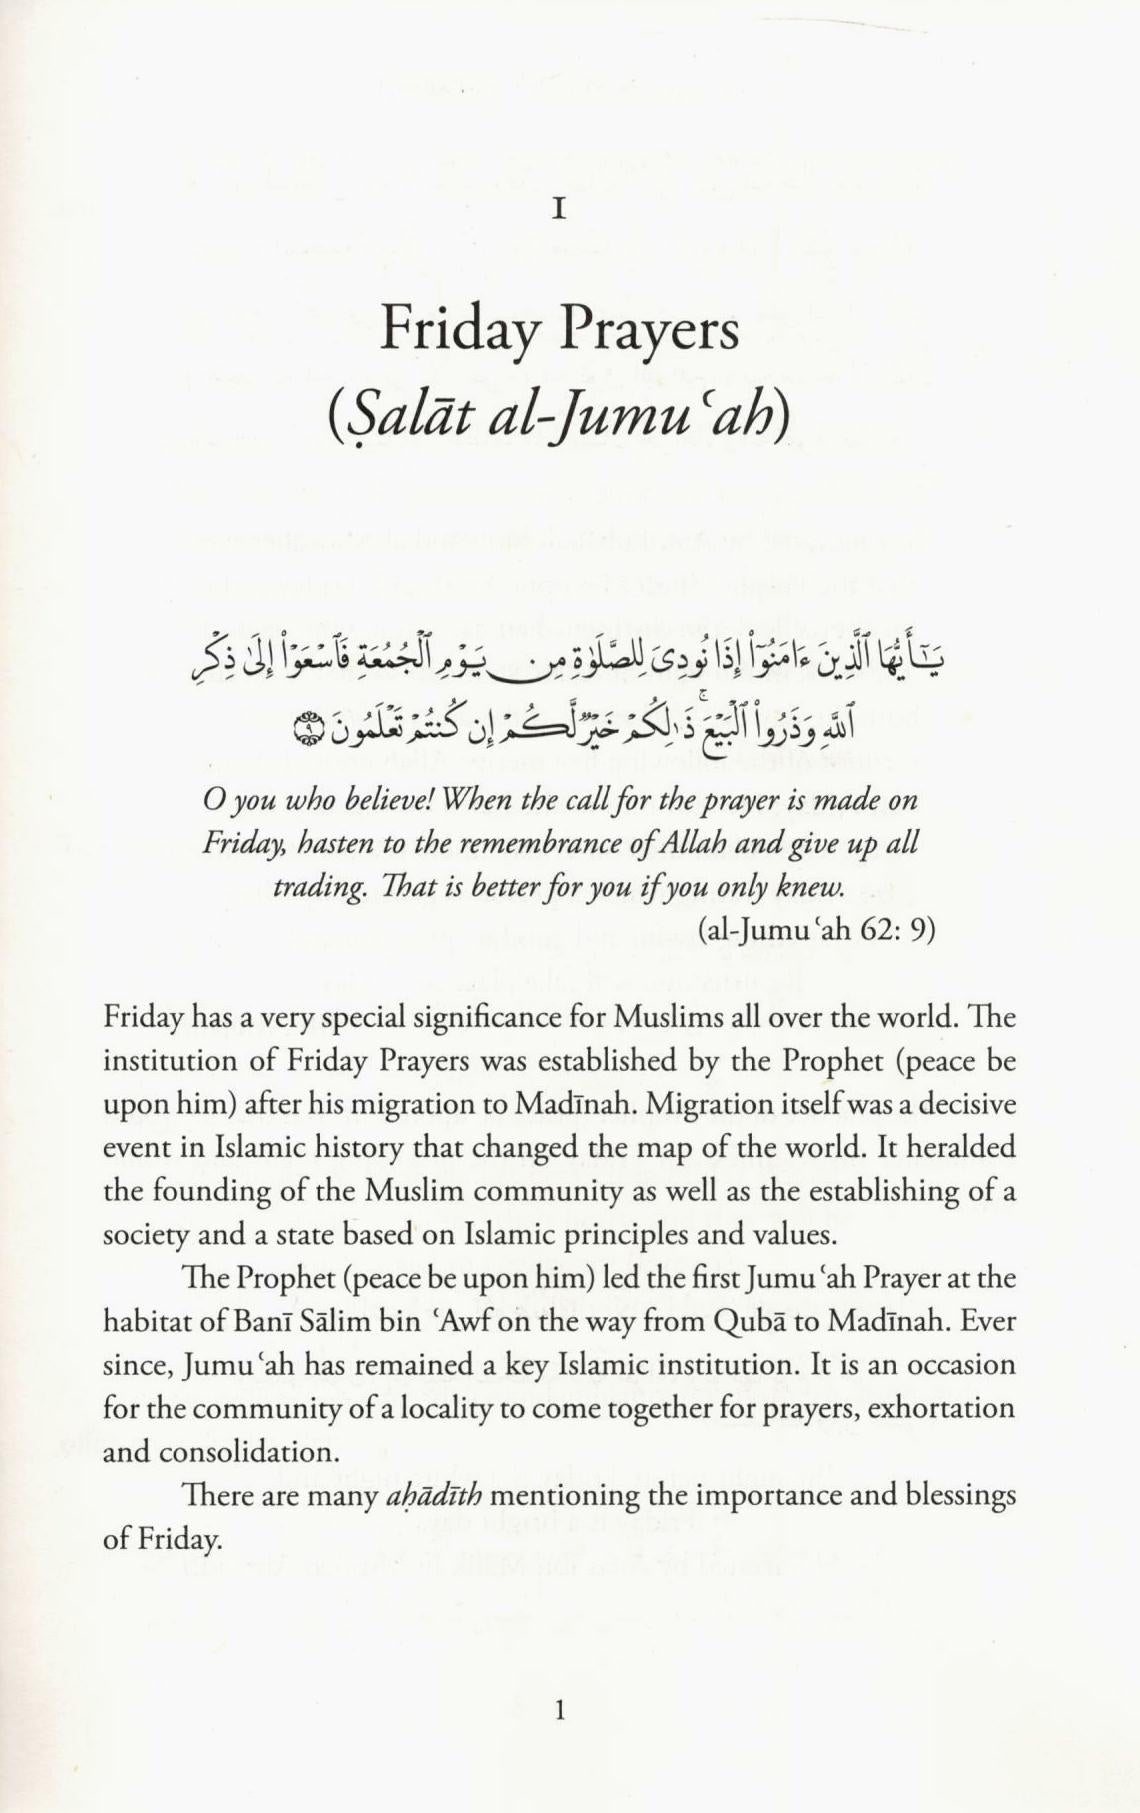 I
Friday Prayers
(Ṣalāt al-Jumuʿah)
يَـٰٓأَيُّهَا ٱلَّذِينَ ءَامَنُوٓا۟ إِذَا نُودِىَ لِلصَّلَوٰةِ مِن يَوْمِ ٱلْجُمُعَةِ فَٱسْعَوْا۟ إِلَىٰ ذِكْرِ
ٱللَّهِ وَذَرُوا۟ ٱلْبَيْعَ ۚ ذَٰلِكُمْ خَيْرٌ لَّكُمْ إِن كُنتُمْ تَعْلَمُونَ ٩
O you who believe! When the call for the prayer is made on
Friday, hasten to the remembrance of Allah and give up all
trading. That is better for you if you only knew.
(al-Jumuʿah 62: 9)
Friday has a very special significance for Muslims all over the world. The
institution of Friday Prayers was established by the Prophet (peace be
upon him) after his migration to Madīnah. Migration itself was a decisive
event in Islamic history that changed the map of the world. It heralded
the founding of the Muslim community as well as the establishing of a
society and a state based on Islamic principles and values.
The Prophet (peace be upon him) led the first Jumuʿah Prayer at the
habitat of Banī Sālim bin ʿAwf on the way from Qubā to Madīnah. Ever
since, Jumuʿah has remained a key Islamic institution. It is an occasion
for the community of a locality to come together for prayers, exhortation
and consolidation.
There are many aḥādīth mentioning the importance and blessings
of Friday.
1